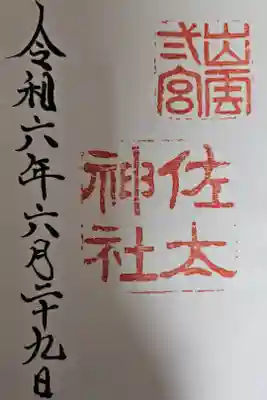 出雲
弍宮
佐太
神社
令和六年六月二十九日